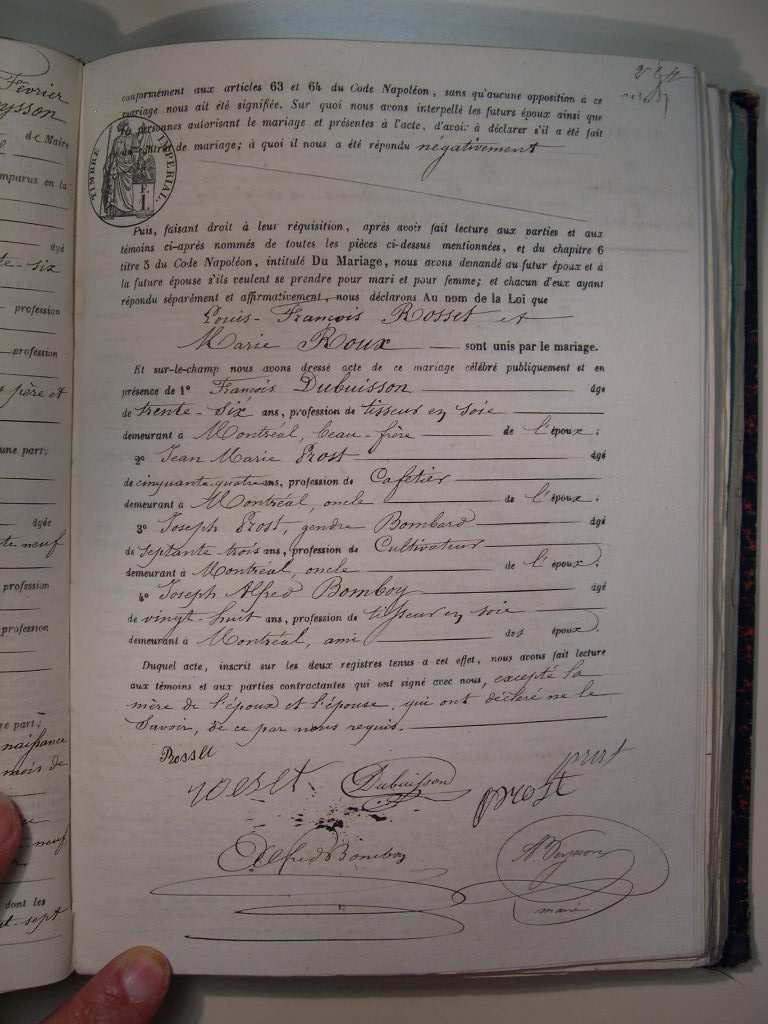 Février
ysson
de Maire
mparus en la
âgé
te-six
profession
profession
père et
une part;
âgée
te neuf
profession
profession
re part;
naissance
mois de
neuf
dont les
t-sept
conformément aux articles 63 et 64 du Code Napoléon, sans qu'aucune opposition à ce
mariage nous ait été signifiée. Sur quoi nous avons interpellé les futurs époux ainsi que
personnes autorisant le mariage et présentes à l'acte, d'avoir à déclarer s'il a été fait
contrat de mariage; à quoi il nous a été répondu négativement
TIMBRE IMPÉRIAL
Puis, faisant droit à leur réquisition, après avoir fait lecture aux parties et aux
témoins ci-après nommés de toutes les pièces ci-dessus mentionnées, et du chapitre 6
titre 5 du Code Napoléon, intitulé Du Mariage, nous avons demandé au futur époux et à
la future épouse s'ils veulent se prendre pour mari et pour femme; et chacun d'eux ayant
répondu séparément et affirmativement, nous déclarons Au nom de la Loi que
Louis-François Rosset et
Marie Roux sont unis par le mariage.
Et sur-le-champ nous avons dressé acte de ce mariage célébré publiquement et en
présence de 1° François Dubuisson âgé
de trente-six ans, profession de tisseur en soie
demeurant à Montréal, beau-frère de l'époux;
2° Jean Marie Prost âgé
de cinquante quatre ans, profession de Cafetier
demeurant à Montréal, oncle de l'époux;
3° Joseph Prost, gendre Bombard âgé
de septante-trois ans, profession de Cultivateur
demeurant à Montréal, oncle de l'époux;
4° Joseph Alfred Bomboy âgé
de vingt-huit ans, profession de tisseur en soie
demeurant à Montréal, ami des époux.
Duquel acte, inscrit sur les deux registres tenus à cet effet, nous avons fait lecture
aux témoins et aux parties contractantes qui ont signé avec nous, excepté la
mère de l'époux et l'épouse, qui ont déclaré ne le
savoir, de ce par nous requis.
Rosset
Dubuisson
prost
prost
Alfred Bomboy
maire